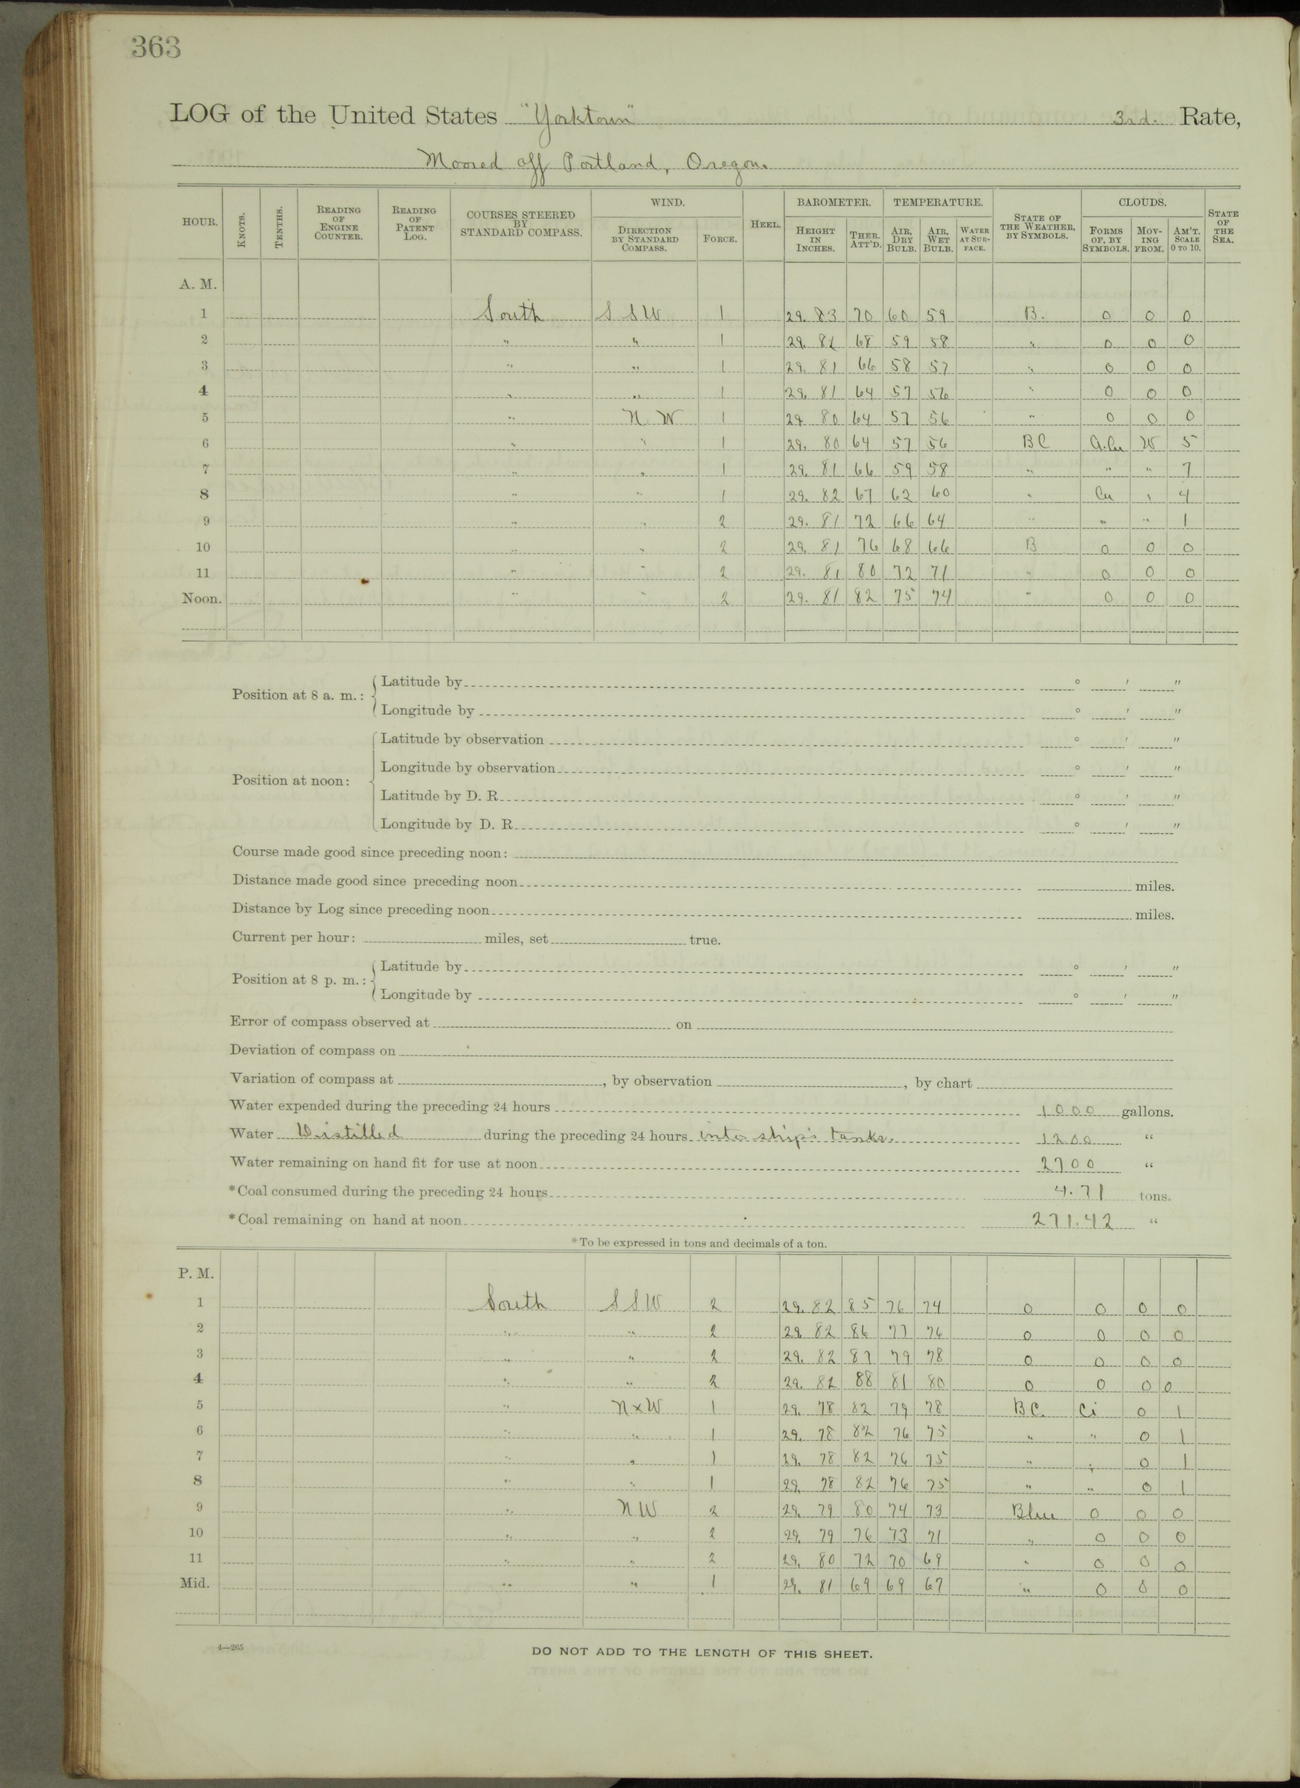 363
LOG of the United States "Yorktown" 3rd. Rate,
Moored off Portland, Oregon.
HOUR. KNOTS. TENTHS. READING OF ENGINE COUNTER. READING OF PATENT LOG. COURSES STEERED BY STANDARD COMPASS. WIND. DIRECTION BY STANDARD COMPASS. FORCE. HEEL. BAROMETER. HEIGHT IN INCHES. THER. ATT'D. TEMPERATURE. AIR, DRY BULB. AIR, WET BULB. WATER AT SURFACE. STATE OF THE WEATHER, BY SYMBOLS. CLOUDS. FORMS OF, BY SYMBOLS. MOVING FROM. AM'T. SCALE 0 TO 10. STATE OF THE SEA.
A. M.
1 South SSW 1 29. 83 70 60 59 B. 0 0 0
2 " " 1 29. 82 68 59 58 " 0 0 0
3 " " 1 29. 81 66 58 57 " 0 0 0
4 " " 1 29. 81 64 57 56 " 0 0 0
5 " N. W 1 29. 80 64 57 56 " 0 0 0
6 " " 1 29. 80 64 57 56 BC A.Cu W 5
7 " " 1 29. 81 66 59 58 " " " 7
8 " " 1 29. 82 67 62 60 " Cu " 4
9 " " 2 29. 81 72 66 64 " " " 1
10 " " 2 29. 81 76 68 66 B 0 0 0
11 " " 2 29. 81 80 72 71 " 0 0 0
Noon. " " 2 29. 81 82 75 74 " 0 0 0
Position at 8 a. m.: Latitude by ° ' "
Longitude by ° ' "
Position at noon: Latitude by observation ° ' "
Longitude by observation ° ' "
Latitude by D. R. ° ' "
Longitude by D. R. ° ' "
Course made good since preceding noon:
Distance made good since preceding noon miles.
Distance by Log since preceding noon miles.
Current per hour: miles, set true.
Position at 8 p. m.: Latitude by ° ' "
Longitude by ° ' "
Error of compass observed at on
Deviation of compass on
Variation of compass at , by observation , by chart
Water expended during the preceding 24 hours 1000 gallons.
Water Distilled during the preceding 24 hours into ship's tanks. 1200 "
Water remaining on hand fit for use at noon 2700 "
*Coal consumed during the preceding 24 hours 4.71 tons.
*Coal remaining on hand at noon 271.42 "
*To be expressed in tons and decimals of a ton.
P. M.
1 South SSW 2 29. 82 85 76 74 0 0 0 0
2 " " 2 29. 82 86 77 76 0 0 0 0
3 " " 2 29. 82 87 79 78 0 0 0 0
4 " " 2 29. 82 88 81 80 0 0 0 0
5 " NxW 1 29. 78 82 79 78 BC. Ci 0 1
6 " " 1 29. 78 82 76 75 " " 0 1
7 " " 1 29. 78 82 76 75 " " 0 1
8 " " 1 29. 78 82 76 75 " " 0 1
9 " NW 2 29. 79 80 74 73 Blue 0 0 0
10 " " 2 29. 79 76 73 71 " 0 0 0
11 " " 2 29. 80 72 70 69 " 0 0 0
Mid. " " 1 29. 81 69 69 67 " 0 0 0
4—265
DO NOT ADD TO THE LENGTH OF THIS SHEET.